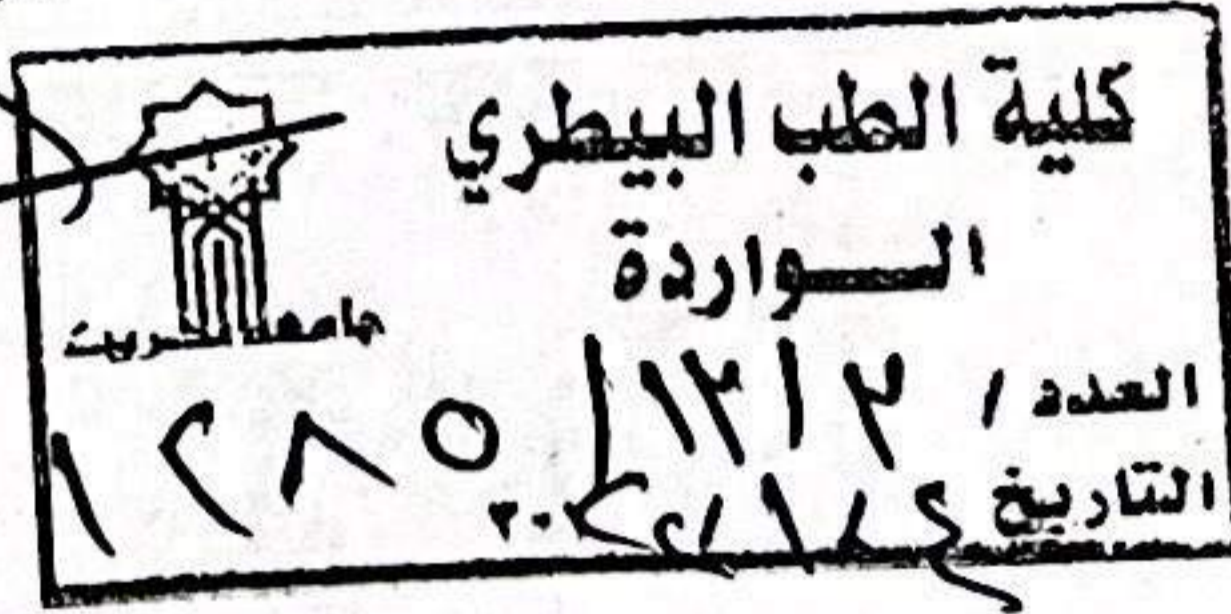 كلية الطب البيطري
الـــواردة
جامعة تكريت
العدد / ٣ / ١٣ / ١٢٨٥
التاريخ ٤ / ١ /